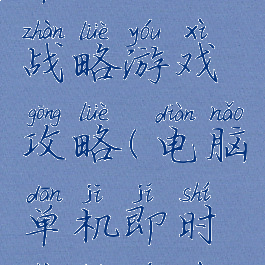 zhàn lüè yóu xì
战略游戏
gōng lüè diàn nǎo
攻略(电脑
dān jī jí shí
单机即时